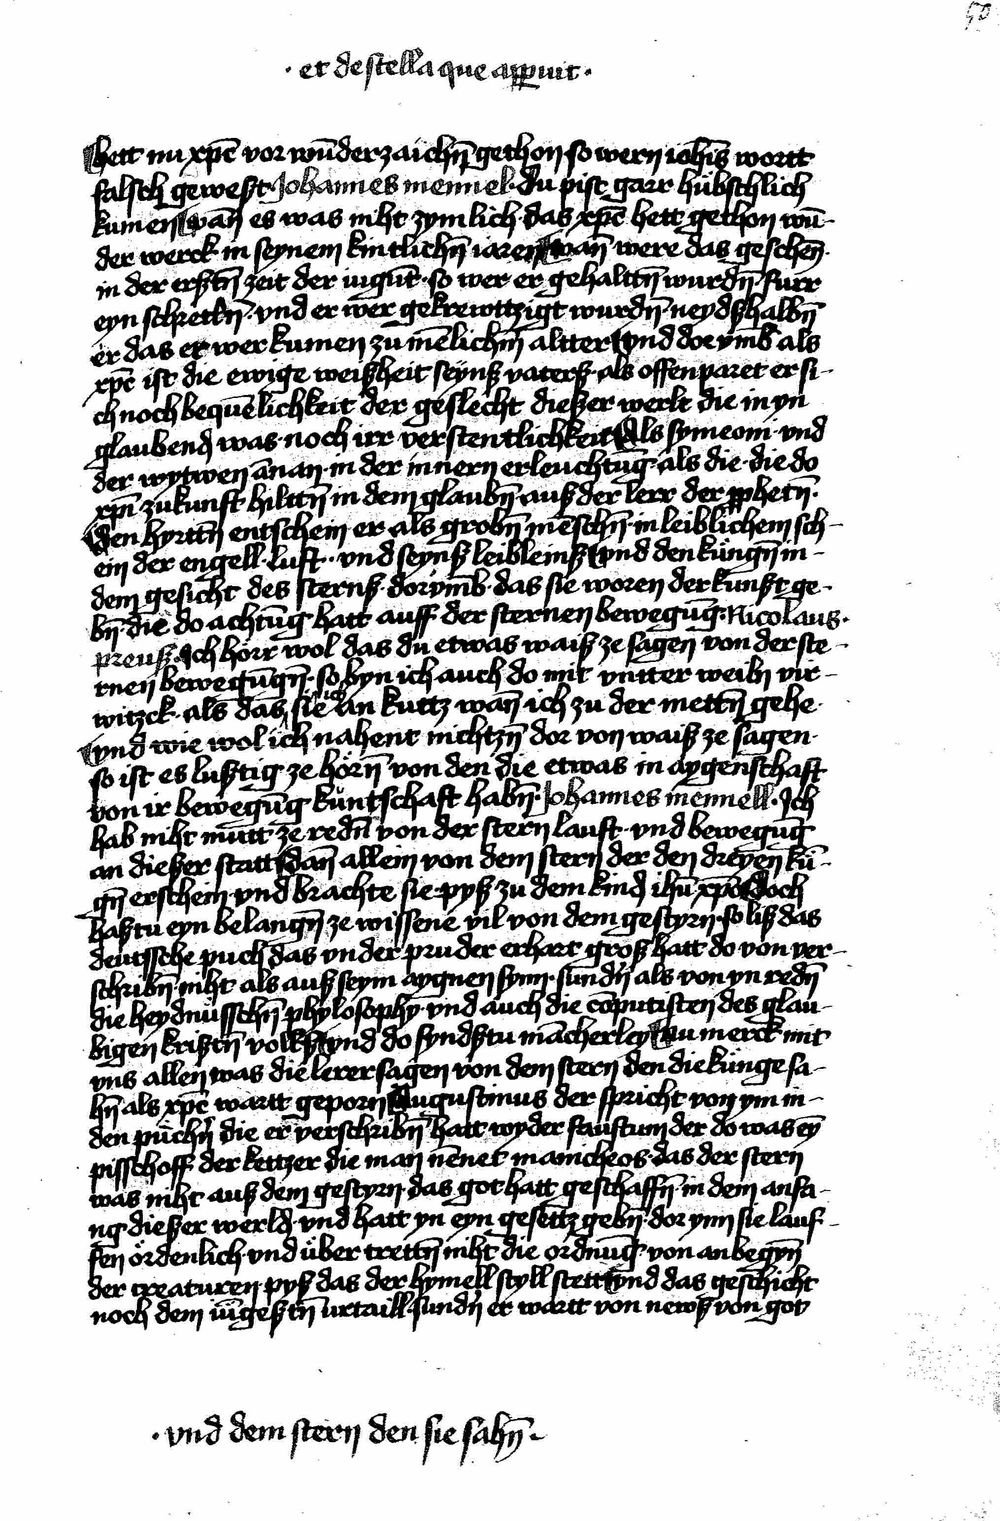 50
· et de stella que apparuit ·
hett nu xpc̄ vor wūderzaichn̄ gethon so wern ioh̄is wortt
falsch geweßt · Johannes mennel · du pist garr hübschlich
kumen wan̄ es was niht zymlich das xpc̄ hett gethon wū-
der werck in seynem kintlichn̄ iaren wan̄ were das geschen̄ ·
in der erßtn̄ zeit der iugūt · so wer er gehaltn̄ wurdn̄ furr
eyn schretkn̄ · vnd er wer gekrewtzigt wurdn̄ neydßhalbn̄
er das er wer kumen zu mēlichn̄ altter vnd dor ymb als
xpc̄ ist die ewige weißheit seynß vaterß als offenparet er si-
ch noch bequēlichkeit der geslecht dießer werlt die in yn
glaubend was noch irr verstentlichkeit Als symeoni · vnd
der wytwen an̄an · in der innern erleuchtūg · als die · die do
xpn̄ zukunft hiltn̄ in dem glaubn̄ auß der lerr der pphetn̄ ·
Den hyrttn̄ entschein er als grobn̄ mēschn̄ · in leiblichem sch-
ein der engell · luft · vnd seynß leibleinß vnd den küngn̄ in-
dem gesicht des sternß dorymb · das sie woren der kunßt ge-
bn̄ · die do achtūg hatt auff der sternen bewegūg · Nicolaus ·
preuß · Ich hörr wol das du etwas waiß ze sagen von der ste-
rnen bewegūgn̄ · so byn ich auch do mit vntter weiln vir-
witzck · als das sie ich an kuttz wan̄ ich zu der mettn̄ gehe ·
vnd wie wol ich nahent nichtzn̄ dor von waiß ze sagen ·
so ist es lußtig ze hörn̄ von den die etwas in aygenschaft
von ir bewegūg küntschaft habn̄ · Johannes mennell · Ich
hab niht mutt ze redn̄ von der stern lauft · vnd bewegūg
an dießer statt dan̄ allein von dem stern der den dreyen kü-
gn̄ erschein · vnd brachte sie pyß zu dem kind ihū xpō doch
haßtu eyn belangn̄ ze wissene vil von dem gestyrn · so liß das
deutssche puch das vnder pruder erhart groß hatt do von ver-
schribn̄ · niht als auß seym aygnen synn · sundn̄ als von yn redn̄
die heydnüsschn̄ phylosophy · vnd auch die cōputisten des glau-
bigen krißtn̄ volkß vnd do fyndßtu mācherley Nu merck mit
vns allen was die lerer sagen von dem stern den die künge sa-
hn̄ als xpc̄ wartt geporn Augustinus der spricht von ym in-
den püchn̄ die er verschribn̄ hatt wyder faustum der do was eȳ
pisschoff der kettzer die man nēnet manicheos · das der stern
was niht auß dem gestyrn · das got hatt geschaffn̄ in dem anfa-
ng dießer werld · vnd hatt yn eyn gesettz gebn̄ · dor ynn sie lauf-
fen ordenlich · vnd über trettn̄ niht die ordnūg von anbegyn̄
der creaturen · pyß das der hymell styll stett vnd das geschicht
noch dem iūgeßtn̄ urtaill · sundn̄ er wartt von newß von got
· vnd dem stern den sie sahn̄ ·